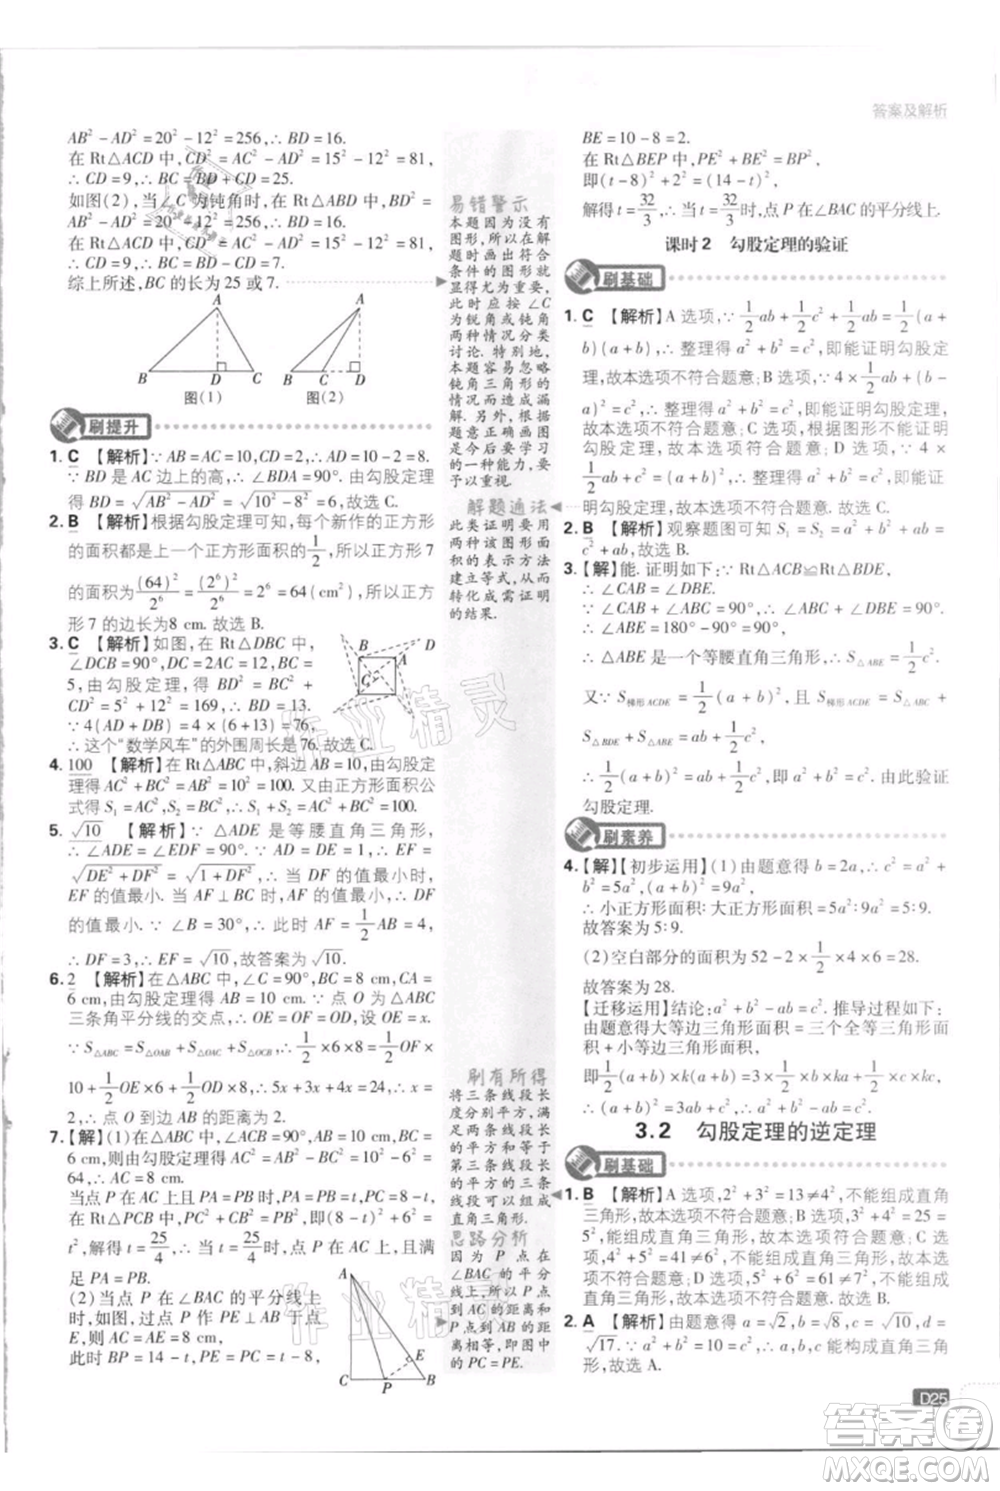 答案及解析
AB²－AD²＝20²－12²＝256,∴ BD＝16.
在 Rt△ACD 中,CD²＝AC²－AD²＝15²－12²＝81,
∴ CD＝9,∴ BC＝BD＋CD＝25.
如图(2),当∠C为钝角时,在 Rt△ABD 中,BD²＝
AB²－AD²＝20²－12²＝256,∴ BD＝16.
在 Rt△ACD 中,CD²＝AC²－AD²＝15²－12²＝81,
∴ CD＝9,∴ BC＝BD－CD＝7.
综上所述,BC 的长为 25 或 7.
A
B D C
图(1)
A
B C D
图(2)
刷提升
1. C 【解析】∵ AB＝AC＝10,CD＝2,∴ AD＝10－2＝8.
∵ BD 是 AC 边上的高,∴ ∠BDA＝90°,由勾股定理
得 BD＝√(AB²－AD²)＝√(10²－8²)＝6,故选 C.
2. B 【解析】根据勾股定理可知,每个新作的正方形
的面积都是前一个正方形面积的 1/2,所以正方形 7
的面积为 (64)²/2⁶＝(2⁶)²/2⁶＝2⁶＝64(cm²),所以正方
形 7 的边长为8 cm. 故选 B.
3. C 【解析】如图,在 Rt△DBC 中,
∠DCB＝90°,BC＝5,CD＝6×2＝12,
由勾股定理,得 BD²＝BC²＋
CD²＝5²＋12²＝169,∴ BD＝13.
∵ 4(AD＋DB)＝4×(6＋13)＝76,
∴ 这个“数学风车”的外围周长是76. 故选 C.
B D
A
C
4. 100 【解析】在 Rt△ABC 中,斜边 AB＝10,由勾股定
理得 AC²＋BC²＝AB²＝10²＝100. 又由正方形面积公
式得 S₁＝AC²,S₂＝BC²,∴ S₁＋S₂＝AC²＋BC²＝100.
5. √10 【解析】∵ △ADE 是等腰直角三角形,
∴ ∠ADE＝∠EDF＝90°,∴ AD＝DE＝1. ∵ EF＝
√(DE²＋DF²)＝√(1＋DF²),∴ 当 DF 的值最小时,
EF 的值最小,∴ 当 AF⊥BC 时,AF 的值最小,即 DF
的值最小. ∵ ∠B＝30°,∴ 此时 AF＝1/2 AB＝4,
∴ DF＝3,∴ EF＝√10,故答案为√10.
6. 2 【解析】在△ABC 中,∠C＝90°,BC＝8 cm,CA＝
6 cm,由勾股定理得 AB＝10 cm. ∵ 点 O 为△ABC 的
三条角平分线的交点,∴ OE＝OF＝OD. 设 OE＝x.
∵ S△ABC＝S△OAB＋S△OAC＋S△OCB,∴ 1/2×6×8＝1/2×
10x＋1/2 OF×6＋1/2 OD×8,∴ 5x＋3x＋4x＝24,∴ x＝
2,∴ 点 O 到边 AB 的距离为 2 cm.
7.【解】(1)在△ABC 中,∵ ∠ACB＝90°,AB＝10,AC＝
6,∴ 由勾股定理得 BC²＝AB²－AC²＝10²－6²＝
64,∴ BC＝8.
当点 P 在 BC 上,且满足 PA＝PB＝t 时,PC＝8－t,
在 Rt△PCB 中,由勾股定理,得 PC²＋AC²＝PA²,即(8－t)²＋6²＝
t²,解得 t＝25/4,∴ 当 t＝25/4 时,点 P 在 BC 上,且满
足 PA＝PB.
(2)当点 P 在∠BAC 的平分线上
时,如图,过点 P 作 PE⊥AB 于点
E,
此时 BP＝14－t,PE＝PC＝t－6,
A
E
C P B
易错警示
本题因为没有
图形,所以在解
题时画出符合
条件的图形就
显得尤为重要,
此时应按∠C
为锐角或钝角
两种情况分类
讨论. 特别地,
本题容易忽略
钝角三角形的
情况而造成漏
解. 另外,按照
题意正确画图
也是应要学习
的一种能力,需
要予以重视.
解题通法
此类证明要用
两种该图形面
积的表示方法
建立等式,从而
转化成需证明
的结果.
刷有所得
将三条线段长
度分别平方,满
足两条线段长
的平方和等于
第三条线段长
的平方的三条
线段可以组成
直角三角形.
思路分析
因为 P 点在
∠BAC 的平分
线上,所以 P
点到 AB 的距
离与 P 点到
AC 的距离相
等,作出 P 点
到 AB 的距离
PE,构造直角
三角形,注意
的 PC＝PE.
BE＝10－8＝2.
在 Rt△BEP 中,PE²＋BE²＝BP²,
即(t－8)²＋2²＝(14－t)²,
解得 t＝32/3,∴ 当 t＝32/3 时,点 P 在∠BAC 的平分线上.
课时 2 勾股定理的验证
刷基础
1. C 【解析】A 选项,∵ 1/2 ab＋1/2 c²＋1/2 ab＝1/2(a＋
b)(a＋b),∴ 整理得 a²＋b²＝c²,即能证明勾股定
理,故本选项不符合题意;B 选项,∵ 4×1/2 ab＋c²＝
(a＋b)²,∴ 整理得 a²＋b²＝c²,即能证明勾股定理,
故本选项不符合题意;C 选项,根据图形不能证明
勾股定理,故本选项符合题意;D 选项,∵ 4×
1/2 ab＝c²－(b－a)²,∴ 整理得 a²＋b²＝c²,即能证
明勾股定理,故本选项不符合题意. 故选 C.
2. B 【解析】观察题图可知 S₁＝S₂＝a²＋b²＋ab＝
c²＋ab,故选 B.
3.【解】能. 证明如下:∵ Rt△ACB≌Rt△BDE,
∴ ∠CAB＝∠DBE.
∵ ∠CAB＋∠CBA＝90°,∴ ∠ABC＋∠DBE＝90°,
∴ ∠ABE＝180°－90°＝90°,
∴ △ABE 是一个等腰直角三角形,∴ S△ABE＝1/2 c².
又∵ S梯形ACDE＝1/2(a＋b)²,S梯形ACDE＝S△ABC＋
S△BDE＋S△ABE＝1/2 ab＋1/2 ab＋1/2 c²＝ab＋1/2 c²,
∴ 1/2(a＋b)²＝ab＋1/2 c²,即 a²＋b²＝c²,由此验证
勾股定理.
刷素养
4.【解】[初步运用](1)由题意得 b＝2a,∴ c²＝a²＋
b²＝5a²,∴ (a＋b)²＝9a²,
∴ 小正方形面积∶大正方形面积＝5a²∶9a²＝5∶9.
故答案为 5∶9.
(2)空白部分的面积为5²＋3²－2×1/2×4×6＝28.
故答案为 28.
[迁移运用]结论:a²＋b²－ab＝c². 推导过程如下:
由题意得大等边三角形面积＝三个全等三角形面
积＋小等边三角形面积,
∴ 1/2(a＋b)×k(a＋b)＝3×1/2×b×ka＋1/2×c×ck,
∴ (a＋b)²＝3ab＋c²,∴ a²＋b²－ab＝c².
3.2 勾股定理的逆定理
刷基础
1. B 【解析】A 选项,2²＋3²＝13≠4²,不能组成直角
三角形,故本选项不符合题意;B 选项,3²＋4²＝25＝
5²,能组成直角三角形,故本选项符合题意;C 选项,
4²＋5²＝41≠6²,不能组成直角三角形,故本选项不
符合题意;D 选项,5²＋6²＝61≠7²,不能组成直角
三角形,故本选项不符合题意. 故选 B.
2. A 【解析】由题意得 a＝√2,b＝√8,c＝√10,d＝
√17. ∵ a²＋b²＝c²,∴ a,b,c 能构成直角三角
形,故选 A.
D25
作业精灵
作业精灵
答案圈
MXQE.COM